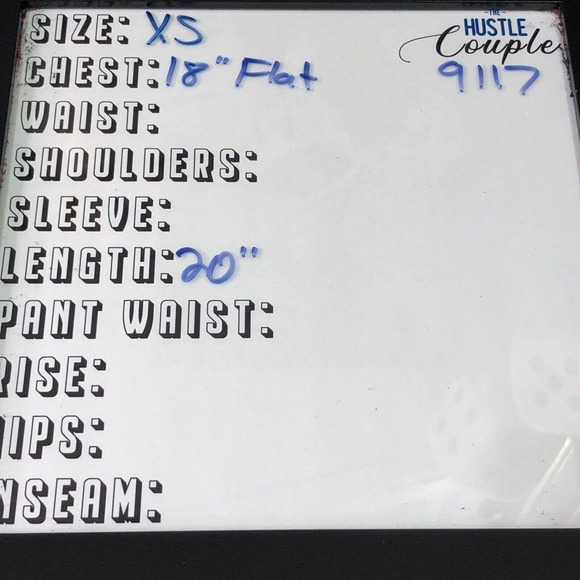 SIZE: XS
THE
HUSTLE
Couple
CHEST: 18" Flat
9117
WAIST:
SHOULDERS:
SLEEVE:
LENGTH: 20"
PANT WAIST:
RISE:
HIPS:
NSEAM: